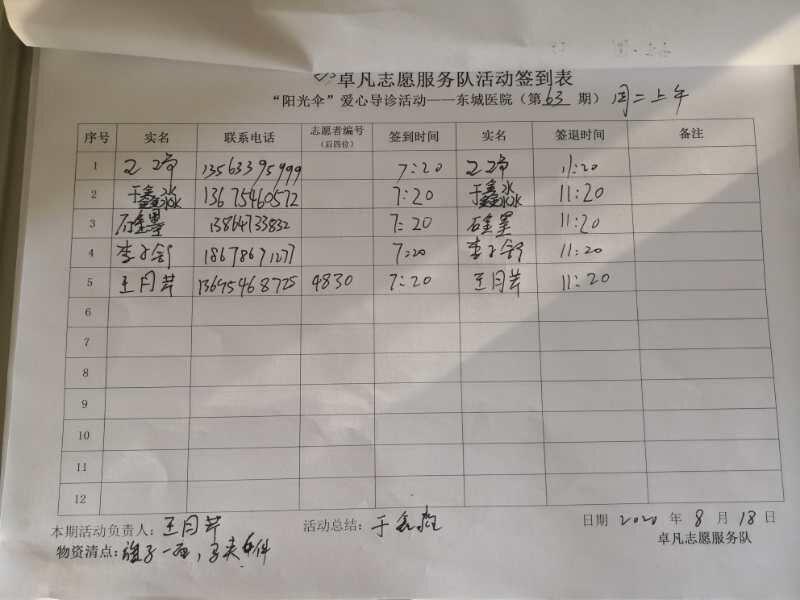 卓凡志愿服务队活动签到表
“阳光伞”爱心导诊活动——东城医院（第63期） 周二上午
序号 实名 联系电话 志愿者编号（后四位） 签到时间 实名 签退时间 备注
1 13563395999 7:20 11:20
2 于鑫淼 13675460572 7:20 于鑫淼 11:20
3 石奎墨 13864733832 7:20 石奎墨 11:20
4 李子舒 18678671277 7:20 李子舒 11:20
5 王月芹 13645468725 4830 7:20 王月芹 11:20
6
7
8
9
10
11
12
本期活动负责人：王月芹 活动总结：于 日期 2020 年 8 月 18 日
物资清点：一面， 件 卓凡志愿服务队